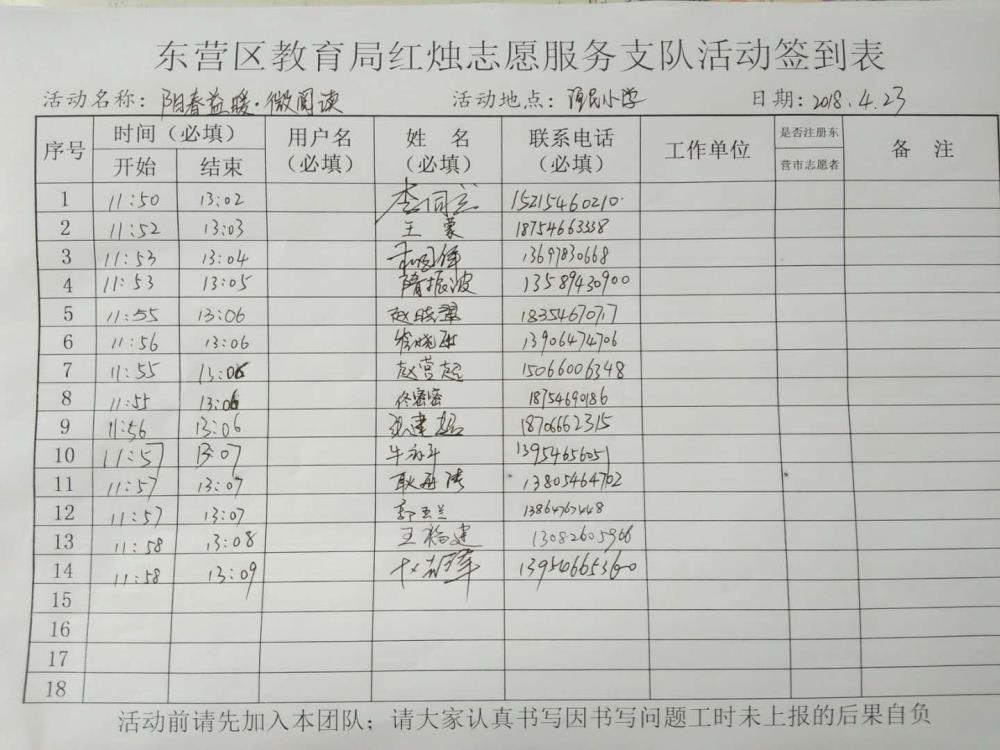 东营区教育局红烛志愿服务支队活动签到表
活动名称：阳春益暖·微阅读 活动地点：育民小学 日期：2018.4.23
序号 时间（必填） 用户名（必填） 姓 名（必填） 联系电话（必填） 工作单位 是否注册东营市志愿者 备 注
开始 结束
1 11:50 13:02 15215460210
2 11:52 13:03 王蒙 18754663338
3 11:53 13:04 13697830668
4 11:53 13:05 隋振波 13589430900
5 11:55 13:06 赵晓翠 18354670717
6 11:56 13:06 13906474706
7 11:55 13:06 赵营超 15066006348
8 11:55 13:06 佟密密 18754690186
9 11:56 13:06 18706662315
10 11:57 13:07 13954656051
11 11:57 13:07 13805464702
12 11:57 13:07 郭玉兰 13864767448
13 11:58 13:08 王福建 13082605966
14 11:58 13:09 139540665360
15
16
17
18
活动前请先加入本团队；请大家认真书写因书写问题工时未上报的后果自负